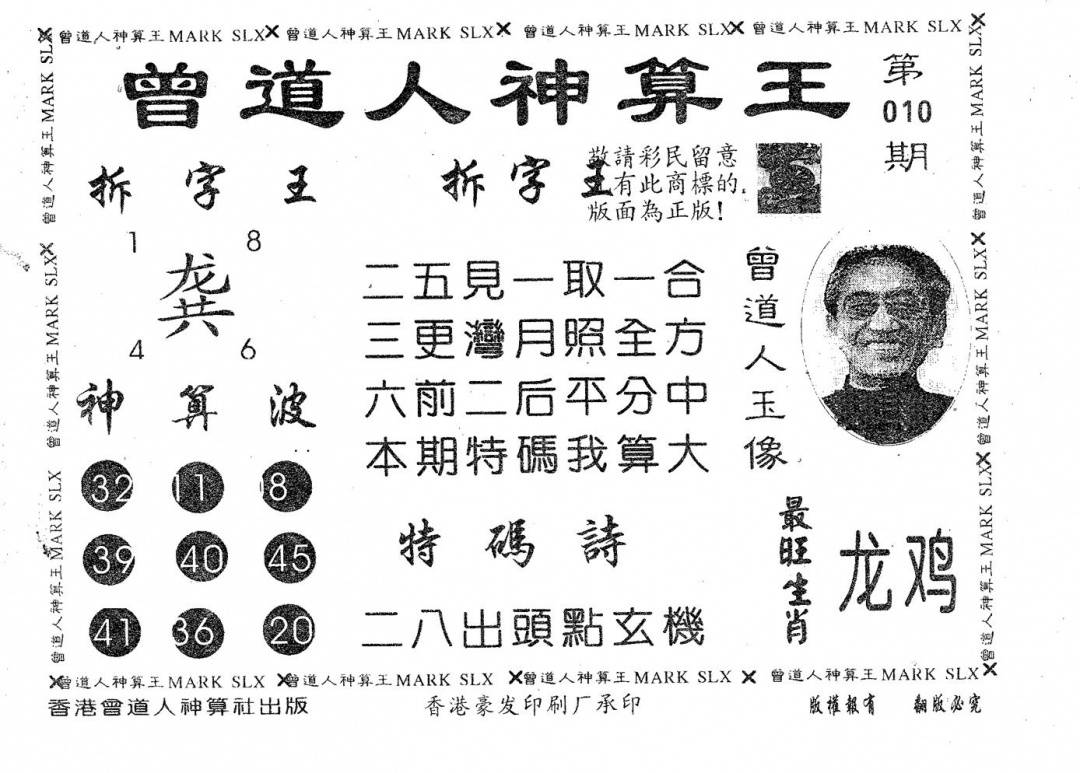 曾道人神算王MARK SLX 曾道人神算王MARK SLX 曾道人神算王MARK SLX 曾道人神算王MARK SLX
曾道人神算王
第
010
期
拆字王
拆字王
敬請彩民留意
有此商標的
版面為正版!
1 8
龚
4 6
神算波
32 11 08
39 40 45
41 36 20
二五見一取一合
三更灣月照全方
六前二后平分中
本期特碼我算大
特碼詩
二八出頭點玄機
曾道人玉像
最旺生肖
龙鸡
曾道人神算王MARK SLX 曾道人神算王MARK SLX 曾道人神算王MARK SLX
曾道人神算王MARK SLX 曾道人神算王MARK SLX 曾道人神算王MARK SLX
曾道人神算王MARK SLX 曾道人神算王MARK SLX 曾道人神算王MARK SLX 曾道人神算王MARK SLX
香港曾道人神算社出版
香港豪发印刷厂承印
版權報有 翻版必究